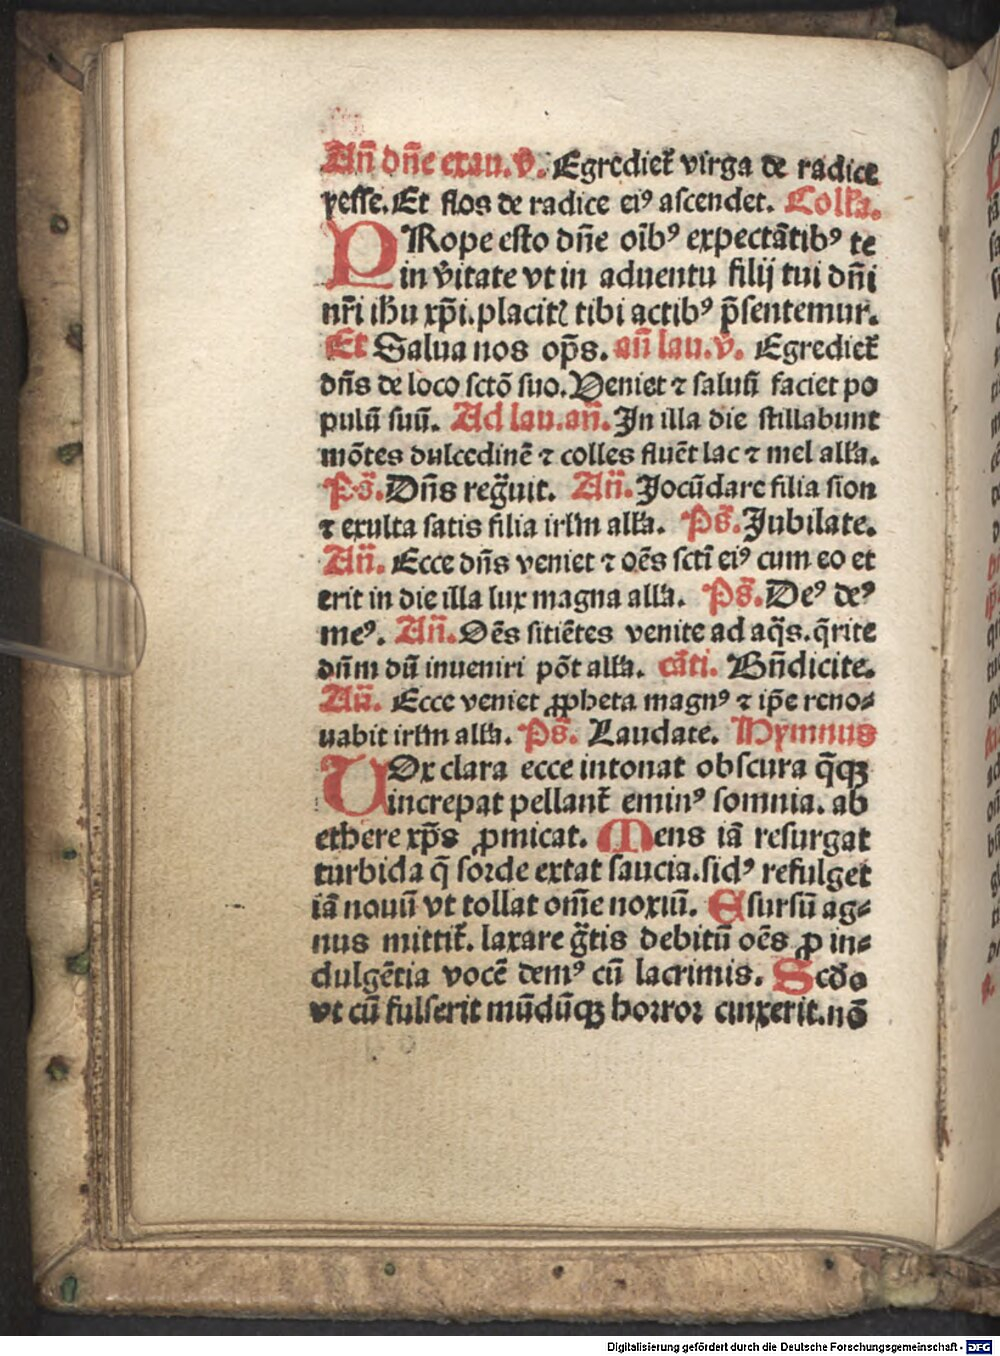 Añ dñe exau. v̄. Egrediet᷑ virga de radice
yesse. Et flos de radice eiꝰ ascendet. Coll̃a.
PRope esto dñe oĩbꝰ expectãtibꝰ te
in v̄itate vt in aduentu filij tui dñi
nr̃i ih̃u xp̃i. placit᷑ tibi actibꝰ p̃sentemur.
Et Salua nos op̃s. añ lau. v̄. Egrediet᷑
dñs de loco sctõ suo. Veniet ⁊ saluũ faciet po
pulũ suũ. Ad lau. añ. In illa die stillabunt
mõtes dulcedinẽ ⁊ colles fluẽt lac ⁊ mel all̃a.
Ps̃. Dñs reg̃uit. Añ. Jocũdare filia sion
⁊ exulta satis filia irl̃m all̃a. Ps̃. Jubilate.
Añ. Ecce dñs veniet ⁊ oẽs sctĩ eiꝰ cum eo et
erit in die illa lux magna all̃a. Ps̃. Deꝰ deꝰ
meꝰ. Añ. Oẽs sitiẽtes venite ad aq̃s. q̃rite
dñm dũ inueniri põt all̃a. cãti. Bñdicite.
Añ. Ecce veniet ꝓpheta magnꝰ ⁊ ip̃e reno⸗
uabit irl̃m all̃a. Ps̃. Laudate. Hymnus
VOx clara ecce intonat obscura q̃qꝫ
increpat pellant᷑ eminꝰ somnia. ab
ethere xp̃s ꝓmicat. Mens iã resurgat
turbida q̃ sorde extat saucia. sidꝰ refulget
iã nouũ vt tollat om̃e noxiũ. E sursũ ag⸗
nus mittit᷑. laxare g̃tis debitũ oẽs ꝓ in⸗
dulgẽtia vocẽ demꝰ cũ lacrimis. Scdo
vt cũ fulserit mũdũqꝫ horror cinxerit. nõ
Digitalisierung gefördert durch die Deutsche Forschungsgemeinschaft - DFG